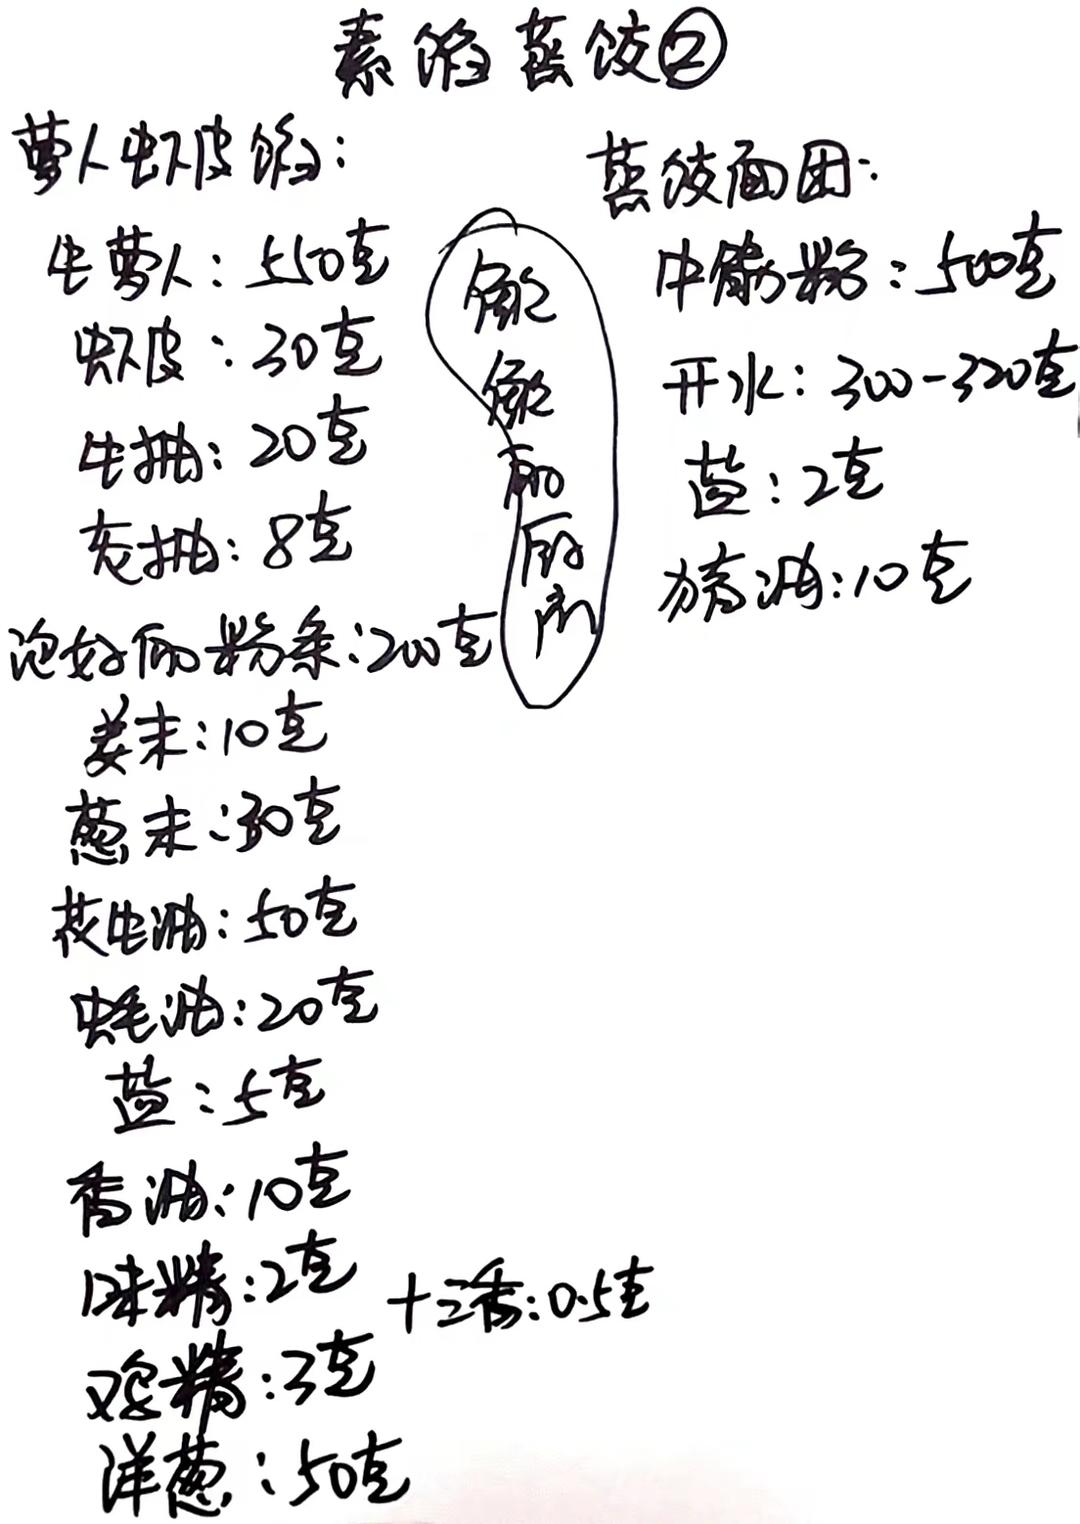 素馅蒸饺②
萝卜虾皮馅:
生萝卜:550克
虾皮:30克
生抽:20克
老抽:8克
泡好的粉条:200克
姜末:10克
葱末:30克
花生油:50克
蚝油:20克
盐:5克
香油:10克
味精:2克
十三香:0.5克
鸡精:3克
洋葱:50克
的
厨
房
蒸饺面团:
中筋粉:500克
开水:300-320克
盐:2克
猪油:10克